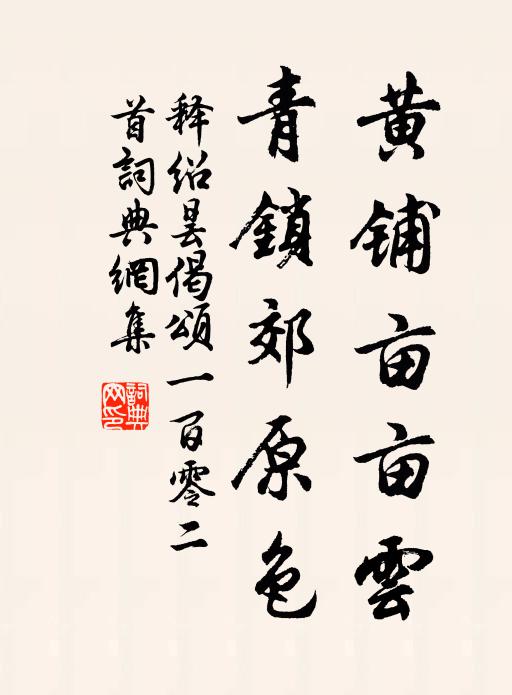 黄铺亩亩雲
青鎖郊原色
释绍昙偈頌一百零二
首詞典網集
詞典網印